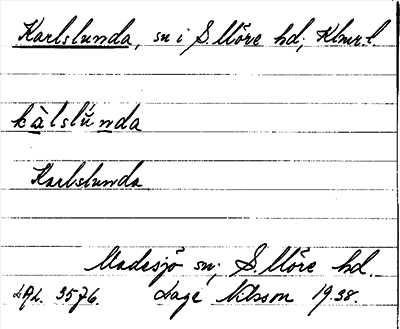 Karlslunda, sn i S. Möre hd; Klmr.l.
kàlslŭnda
Karlslunda
Madesjö sn; S. Möre hd.
LAL. 3576. Dage Nilsson 1938.